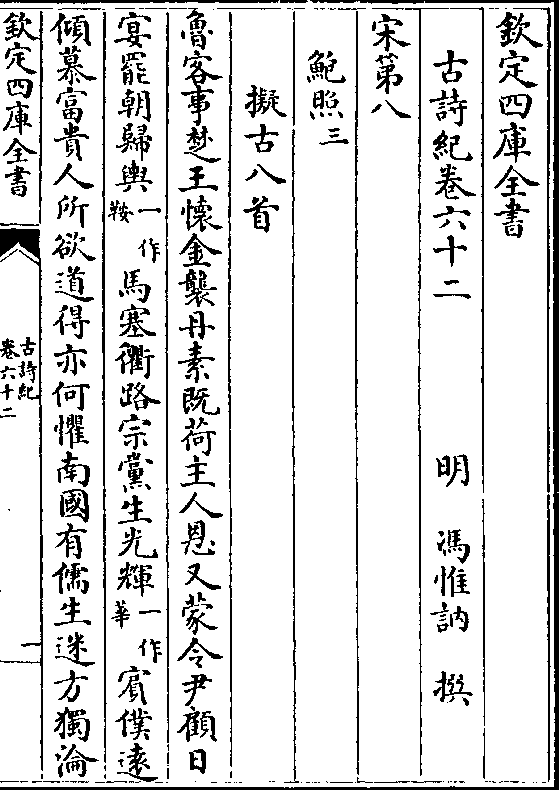 欽定四庫全書
古詩紀卷六十二　明　馮惟訥　撰
宋第八
鮑照三
擬古八首
魯客事楚王懷金襲丹素既荷主人恩又蒙令尹顧日
宴罷朝歸輿一作鞍馬塞衢路宗黨生光輝一作華賓僕遠
傾慕富貴人所欲道得亦何懼南國有儒生迷方獨淪
欽定四庫全書
古詩紀
卷六十二
一